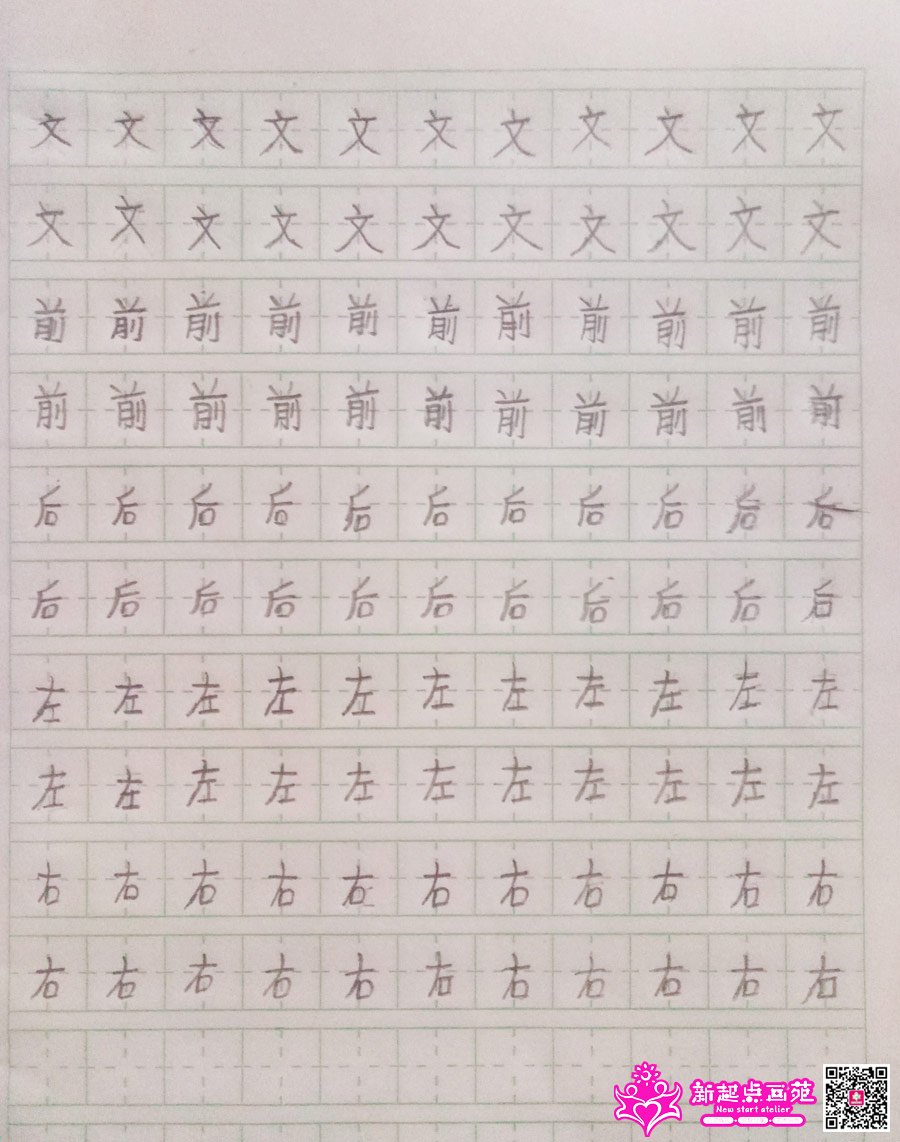 文文文文文文文文文文文
文文文文文文文文文文文
前前前前前前前前前前前
前前前前前前前前前前前
后后后后后后后后后后后
后后后后后后后后后后后
左左左左左左左左左左左
左左左左左左左左左左左
右右右右右右右右右右右
右右右右右右右右右右右
新起点画苑
New start atelier